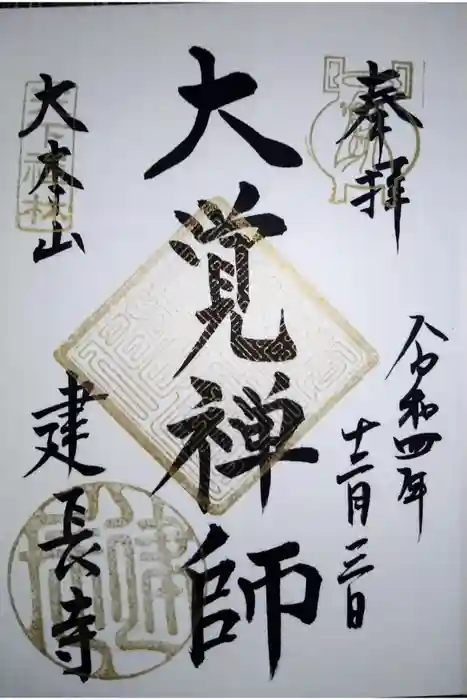 奉拝
令和四年
十二月三日
大覚禅師
大本山
建長寺
天下禅林